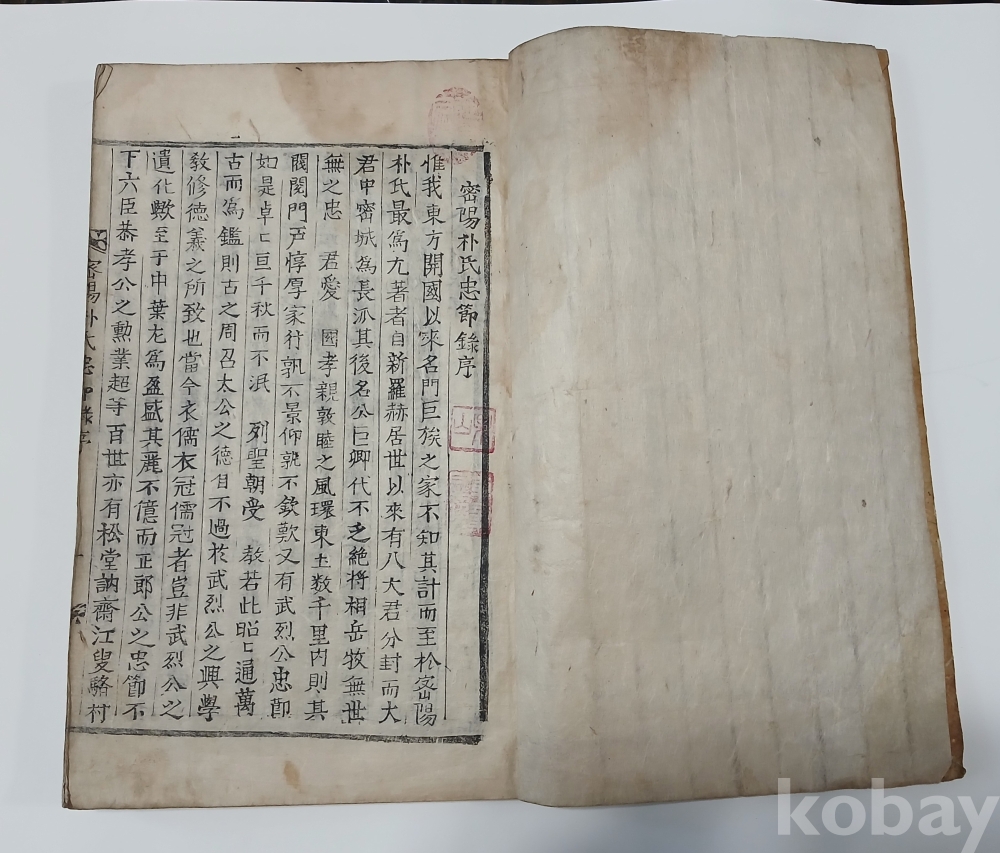 密陽朴氏忠節錄序
惟我東方開國以來名門巨族之家不知其計而至於密陽
朴氏最爲尤著者自新羅赫居世以來有八大君分封而大
君中密城爲長派其後名公巨卿代不乏絶將相岳牧無世
無之忠 君愛 國孝親敦睦之風環東土数千里內則其
閥閱門戶惇厚家行孰不景仰孰不欽歎又有武烈公忠節
如是卓〻亘千秋而不泯 列聖朝受 教若此昭〻通萬
古而爲鑑則古之周召太公之德目不過於武烈公之興學
敎修德義之所致也當今衣儒衣冠儒冠者豈非武烈公之
遺化歟至于中葉尤爲盈盛其麗不億而正郎公之忠節不
下六臣恭孝公之勳業超等百世亦有松堂訥齋江叟駱村
密陽朴氏忠節錄序
kobay